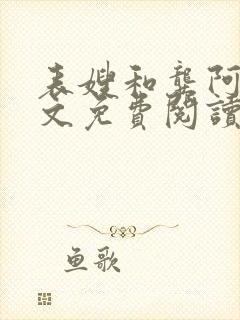 表嫂和龚阿
文免費閱讀
鱼歌